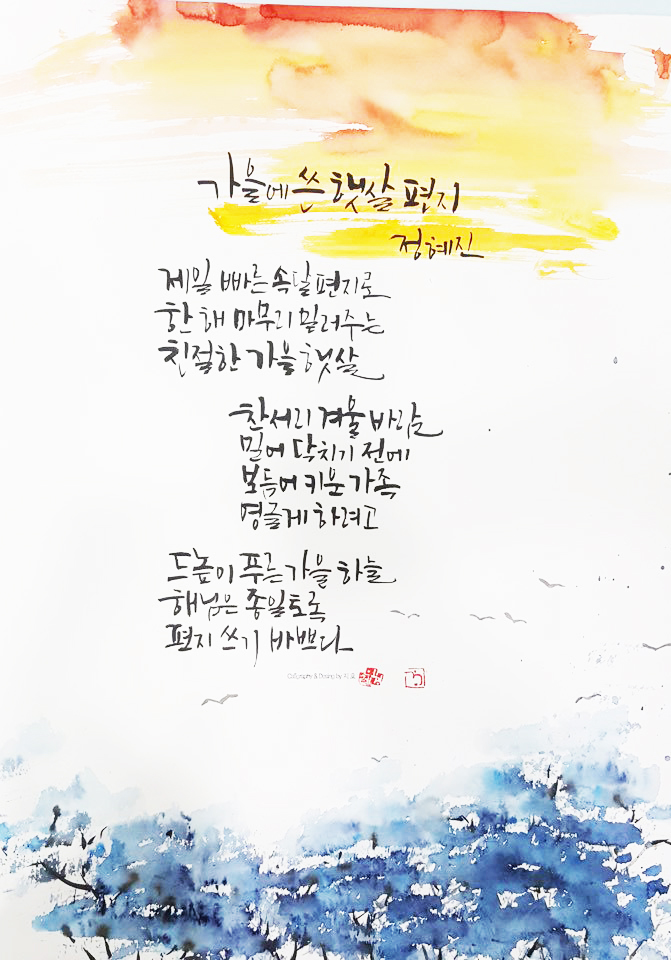 가을에 쓴 햇살 편지
정혜진
제일 빠른 속달 편지로
한 해 마무리 밀려주는
친절한 가을 햇살
찬서리 겨울 바람
밀어 닥치기 전에
보듬어 키운 가족
영글게 하려고
드높이 푸른 가을 하늘
해님은 종일토록
편지 쓰기 바쁘다